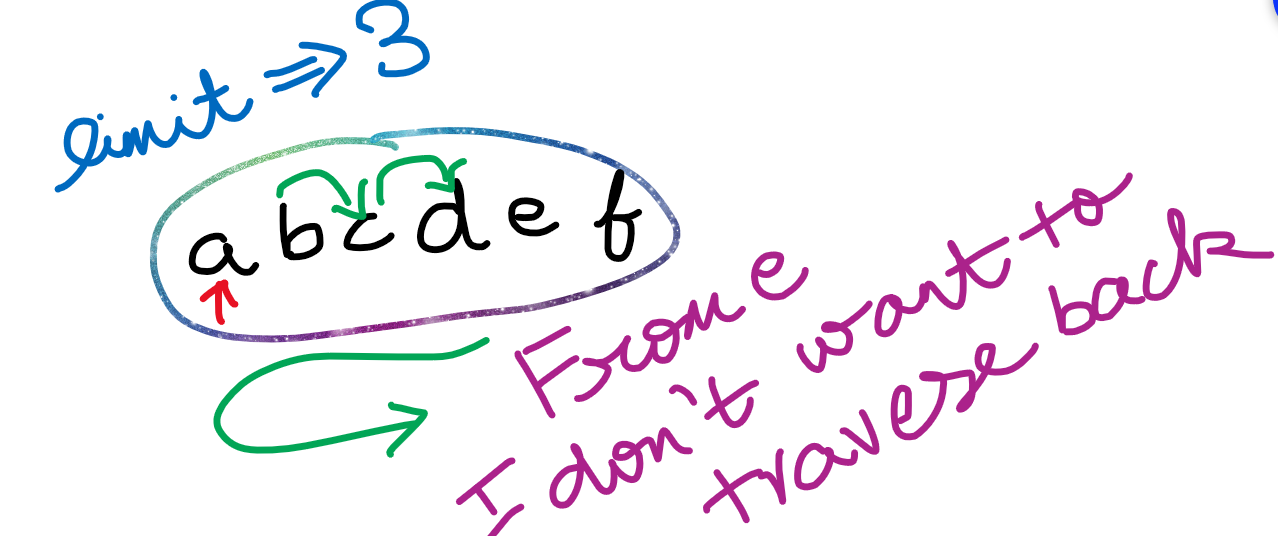 limit ⇒ 3
a b c d e f
From e
I don't want to
traverse back